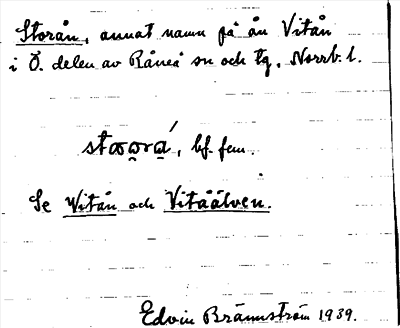 Storån, annat namn på ån Vitån
i Ö. delen av Råneå sn och tg, Norrb. l.
bf. fem.
Se Vitån och Vitåälven.
Edvin Brännström 1939.